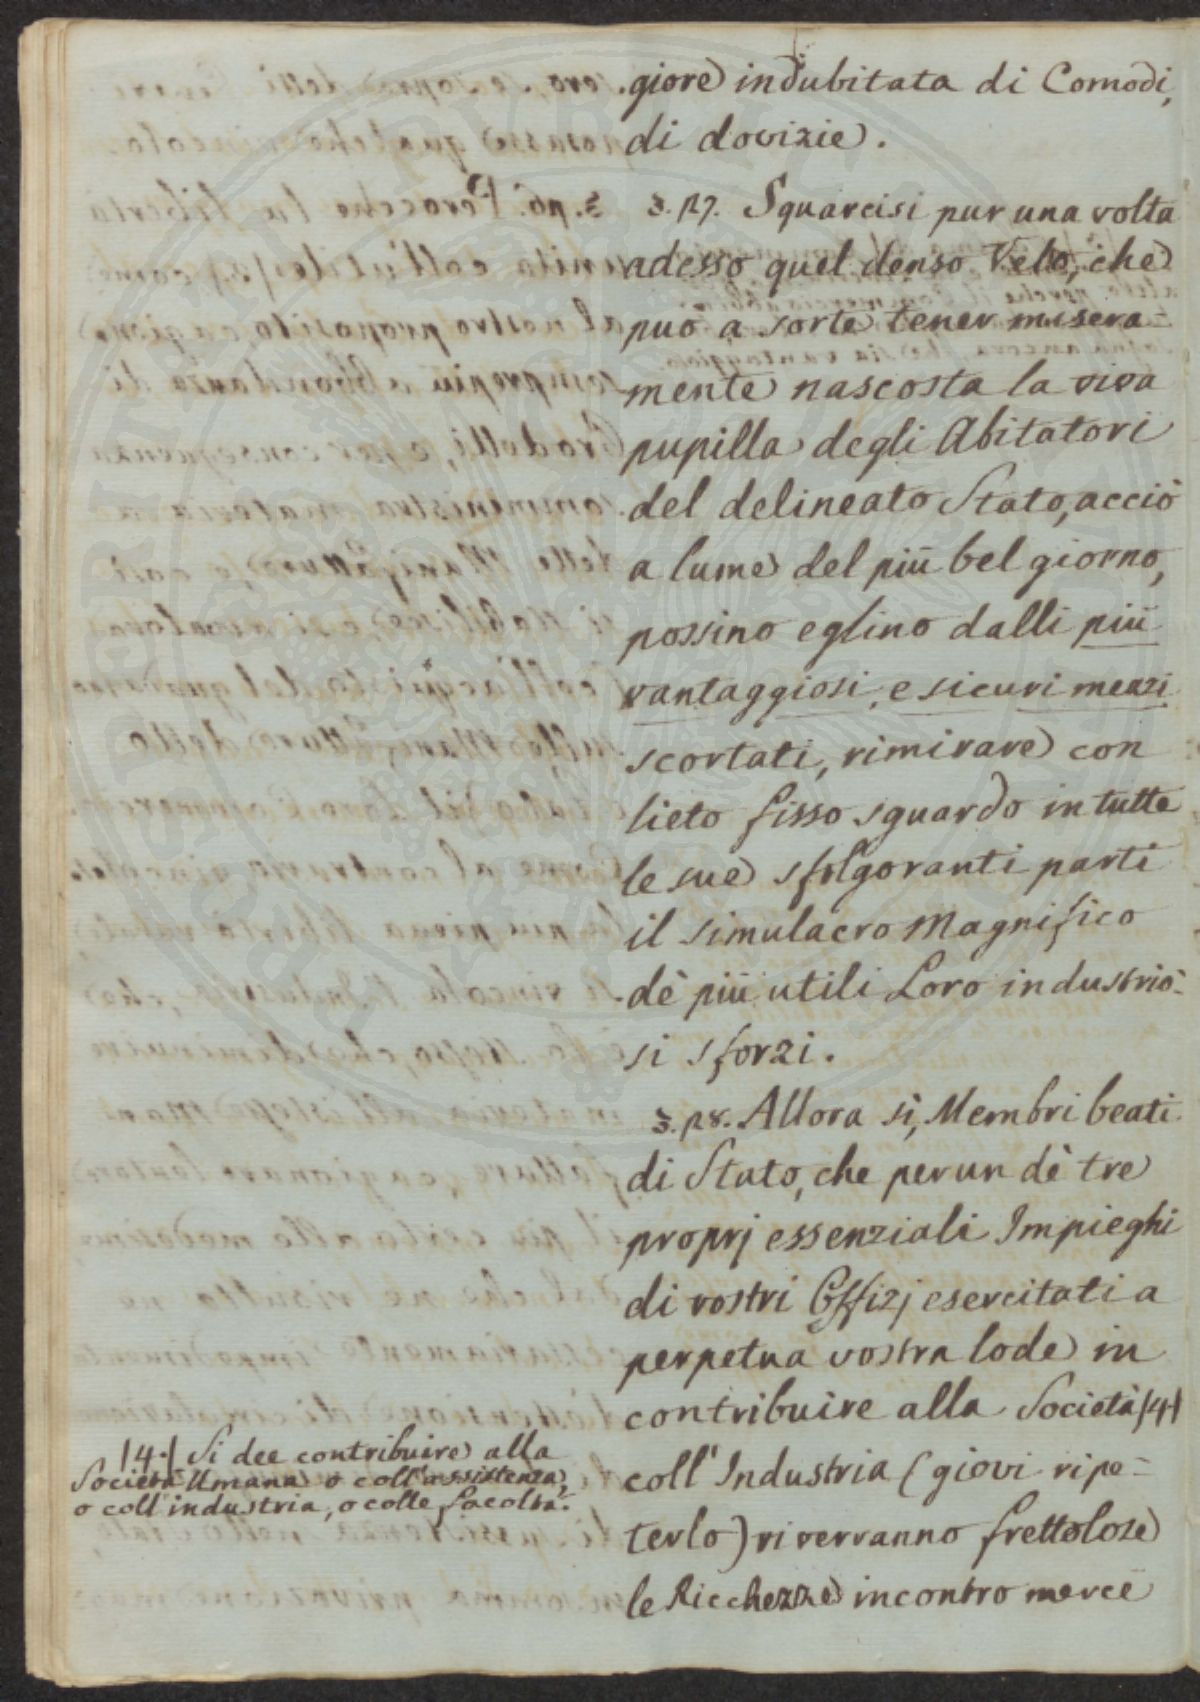 giore indubitata di Comodi,
di dovizie.
§. 27. Squarcisi pur una volta
adesso quel denso Velo, che
puo a sorte tener misera
mente nascosta la viva
pupilla degli Abitatori
del delineato Stato, acciò
a lume del più bel giorno,
possino eglino dalli più
vantaggiosi, e sicuri mezzi
scortati, rimirare con
lieto fisso sguardo in tutte
le sue sfolgoranti parti
il simulacro Magnifico
dè più utili Loro industrio-
si sforzi.
§. 28. Allora sì, Membri beati
di Stato, che per un dè tre
proprj essenziali Impieghi
di vostri Offizj esercitati a
perpetua vostra lode in
contribuire alla Società |4.|
coll'Industria (giovi ripe-
terlo) vi verranno frettolose
le Ricchezze incontro mercè
|4.| Si dee contribuire alla
Società Umana o coll'assistenza,
o coll'industria, o colle facoltà.